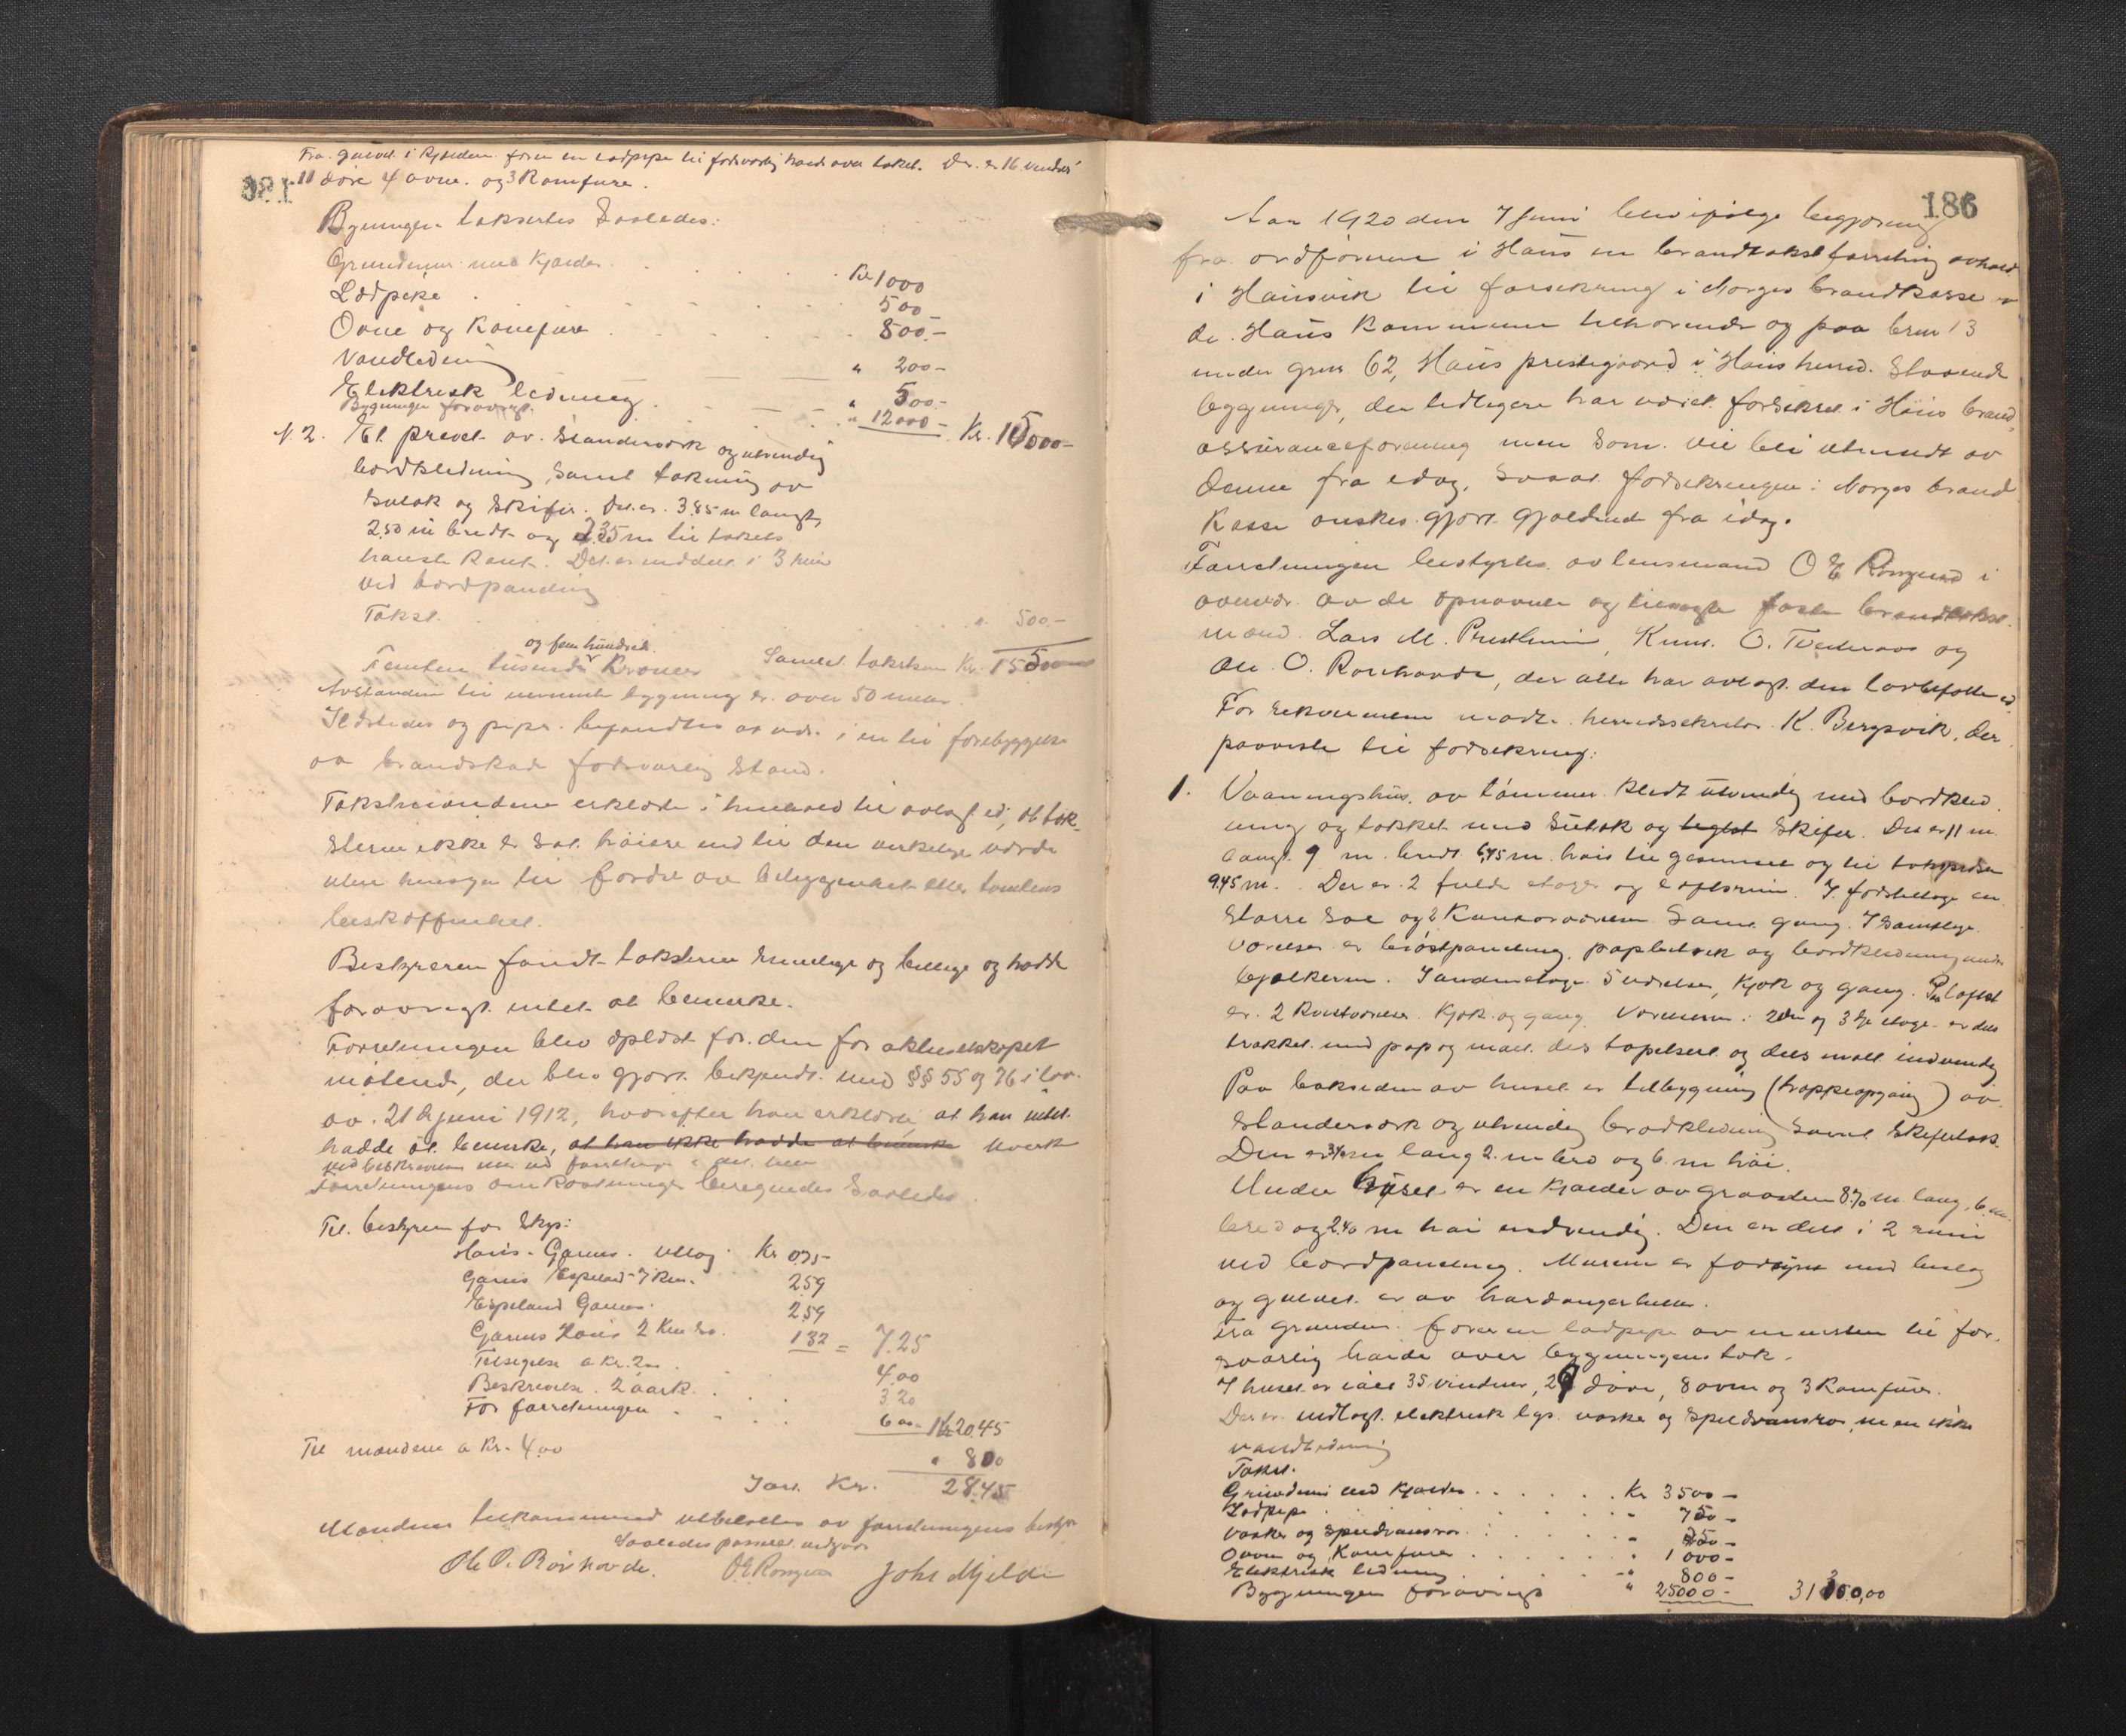 Fra gulvet i kjælderen fører en lodpipe til forsvarlig høide over taket. Der er 16 vinduer
11 døre 4 ovne og 3 Komfure.
Bygningen takseres Saaledes:
Grundmur med Kjælder Kr 1000
Lodpipe 500 -
Ovne og Komfure 800.-
Vandledning " 200 -
Elektrisk ledning " 500.-
Bygningen forøvrigt " 12000 - Kr. 15000 -
N. 2. Et privet av Standerværk og utvendig
bordklædning, Samt tækning av
Sutak og Skifer. Det er 3.85 m langt,
2.50 m bredt og 2.35 m til takets
høieste Kant. Det er inddelt i 3 rum
ved bordpanding
Takst " 500.-
og fem hundrede
Femten tusende Kroner Samlet takstsum Kr. 15500
Avstanden til nærmeste bygning er over 50 meter.
Ildsteder og piper befandtes at være i en til forebyggelse
av brandskade forsvarlig Stand.
Takstmændene erklærte i henhold til avlagt ed, at tak-
sterne ikke er Sat høiere end til den virkelige værdi
uten hensyn til fordel av beliggenhet eller tomtens
beskaffenhet.
Bestyreren fandt taksterne rimelige og billige og hadde
forøvrigt intet at bemerke.
Forretningen blev oplæst for den for aktieselskapet
møtende, der blev gjort bekjendt med §§ 55 og 76 i lov
av 21 juni 1912, hvorefter han erklærte at han intet
hadde at bemerke, at han ikke hadde at bemerke hverk
ved beskrivelsen eller ved forretningen i det hele
Forretningens omkostninger beregnedes Saaledes.
Til bestyreren for Skys:
Haus - Garnes Kr 0,75
Garnes Espeland 7 Km. 2,59
Espeland Garnes 2,59
Garnes Haus 2 Km 1.32 = 7.25
Tilsigelse a Kr. 2.00 4.00
Beskrivelse 2 aark 3.20
For forretningen 6.00 Kr 20.45
Til mændene a Kr. 4.00 " 8.00
Ialt Kr. 28.45
Mændenes tilkommende utbetaltes av forretningens bestyrer
Saaledes passeret undgaar
Ole O. Rørhovde. O E Romseland John Mjelde
186
Aar 1920 den 7 Juni blev ifølge begjæring
fra ordføreren i Haus en brandtakstforretning avholdt
i Hausvik til forsikring i Norges brandkasse av
de Haus Kommune tilhørende og paa brn 13
under grn 62, Haus prestegaard i Haus herred Staaende
bygninger, der tidligere har været forsikret i Haus brand
assuranceforening men Som vil bli utmeldt av
denne fra idag, Saaat forsikringen i Norges brand
Kasse ønskes gjort gjældende fra idag.
Forretningen bestyrtes av lensmand O E Romseland i
overvær av de opnævnte og tilsagte faste brandtakst
mænd Lars M. Prestheim, Knut O. Tveteraas og
Ole O. Rørhovde, der alle har avlagt den lovbefalte ed
For rekvirenten møtte herredssekretær K. Bergsvik, der
paaviste til forsikring:
1. Vaaningshus av tømmer klædt utvendig med bordklæd
ning og tækket med Sutak og teglst Skifer. Det er 11 m
langt 9 m bredt 6,75 m høit til gesimsen og til takspidsen
9.45 m. Der er 2 fulde etager og loftsrum. I første etage en
Større Sal og 2 Kontorværelser Samt gang. I Samtlige
Værelser er brøstpanding, papbetræk og bordklædning under
bjelkerne. I anden etage 5 værelser, Kjøk og gang. Paa loftet
er 2 Kvistværelser Kjøk og gang. Værelserne i 2den og 3dje etage er dels
trukket med pap og malt dels tapetsert og dels malt indvendig
Paa baksiden av huset er tilbygning (trappeopgang) av
Standerværk og utvendig bordklædning Samt Skifertak.
Den er 3,40 m lang 2 m bred og 6 m høi.
Under Huset er en Kjælder av graasten 8.70 m lang, 6 m
bred og 2.40 m høi indvendig. Den er delt i 2 rum
ved bordpanding. Murene er forsynt med
og gulvet er av hardangerheller.
Fra grunden fører en lodpipe av mursten til for
svarlig høide over bygningens tak.
I huset er ialt 35 vinduer, 29 døre, 8 ovne og 3 Komfurer.
Der er indlagt elektrisk lys vaske og Spildvansrør, men ikke
vandledning
Takst.
Grundmur med Kjælder Kr 3500 -
Lodpipe " 750 -
Vaske og Spildvansrør " 250 -
Ovne og Komfurer " 1000 -
Elektrisk ledning " 800 -
Bygningen forøvrigt " 25000 - 31300,00